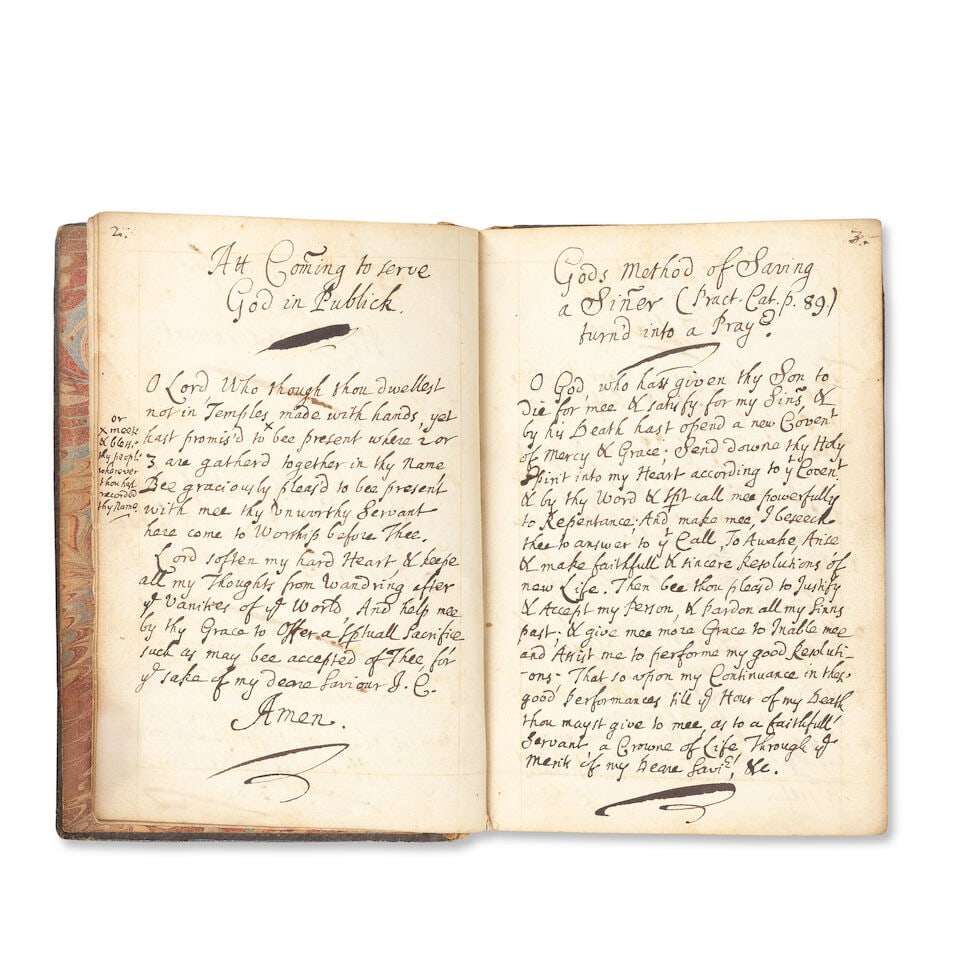 2.
Att Com̃ing to serve
God in Publick.
O Lord, Who though thou dwellest
not in Temples made with hands, yet
hast promis'd to ˣ bee present where 2 or
3 are gatherd together in thy Name
Bee graciously pleas'd to bee present
with mee thy vnworthy Servant
here come to Worship before Thee.
Lord soften my hard Heart & keepe
all my Thoughts from Wandring after
yᵉ Vanities of yᵉ World, And help mee
by thy Grace to Offer a sptuall Sacrifice
such as may bee accepted of Thee for
yᵉ sake of my deare Saviour J. C.
Amen.
or
x meet
& bless
thy people
wherever
thou hast
recorded
thy Name
3.
Gods Method of Saving
a Sin̄er (Pract. Cat. p. 89)
turn'd into a Prayʳ.
O God, who hast given thy Son to
die for mee & satisfy for my Sins, &
by his Death hast opend a new Covenᵗ
of Mercy & Grace; Send downe thy Holy
Spirit into my Heart according to yᵗ Covenᵗ
& by thy Word & Spt call mee powerfully
to Repentance; And make mee, I beseech
thee to answer to yᵗ Call, To Awake, Arise
& make faithfull & sincere Resolutions of
new Life. Then bee thou pleas'd to Justify
& Accept my Person, & pardon all my Sinns
past; & give mee more Grace to Inable mee
and Assist me to performe my good Resoluti-
-ons. That so upon my Continuance in thes
good Performances till yᵉ Hour of my Death
thou mayst give to mee, as to a faithfull
Servant, a Crowne of Life Through yᵉ
merit of my Deare Saviʳ, &c.